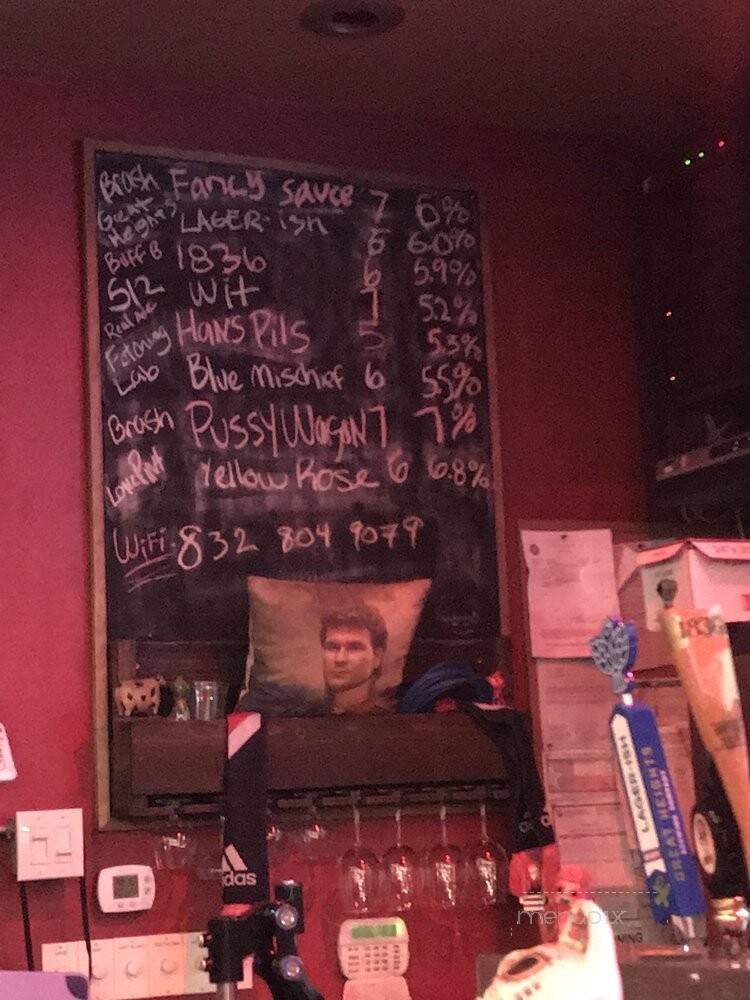 Brash Fancy Sauce 7 6%
Great Heights LAGER-ish 6 6.0%
Buff B 1836 6 5.9%
512 Wit 7 5.2%
Real Ale Hans Pils 5 5.3%
Lab Blue Mischief 6 5.5%
Brash PUSSYWagon 7 7%
Lone Pint Yellow Rose 6 6.8%
WiFi- 832 804 9079
1836
LAGER-ISH
GREAT HEIGHTS
BREWING COMPANY
adidas
menupix